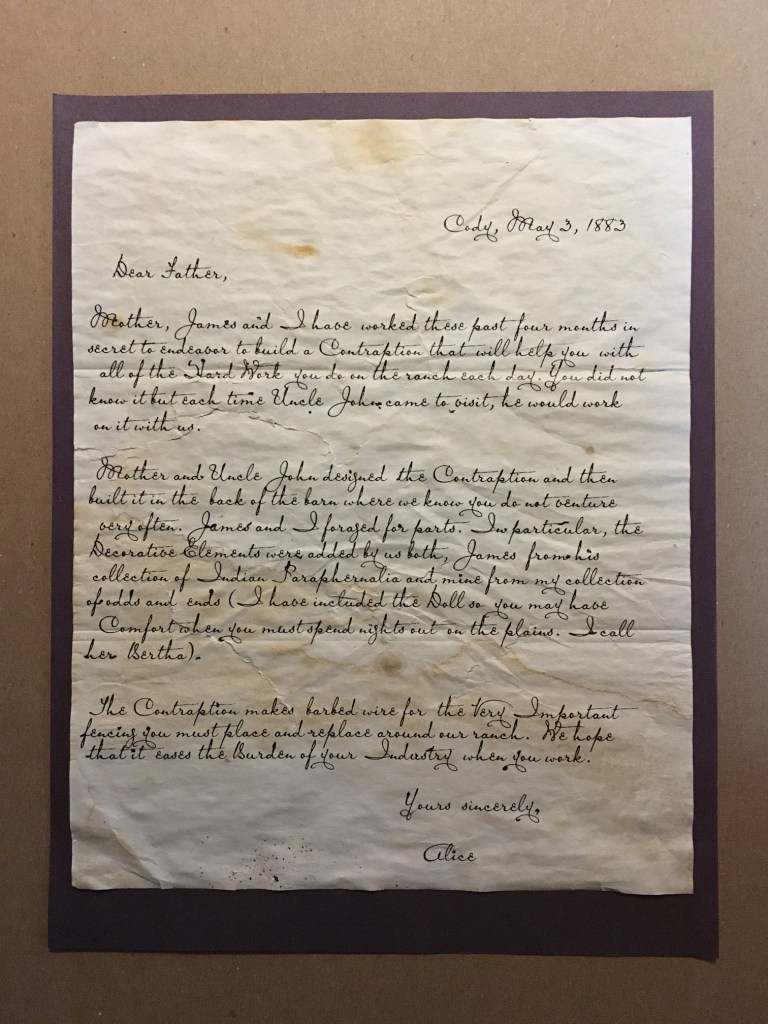 Cody, May 3, 1883
Dear Father,
Mother, James and I have worked these past four months in
secret to endeavor to build a Contraption that will help you with
all of the Hard Work you do on the ranch each day. You did not
know it but each time Uncle John came to visit, he would work
on it with us.
Mother and Uncle John designed the Contraption and then
built it in the back of the barn where we know you do not venture
very often. James and I foraged for parts. In particular, the
Decorative Elements were added by us both, James from his
collection of Indian Paraphernalia and mine from my collection
of odds and ends (I have included the Doll so you may have
Comfort when you must spend nights out on the plains. I call
her Bertha).
The Contraption makes barbed wire for the Very Important
fencing you must place and replace around our ranch. We hope
that it eases the Burden of your Industry when you work.
Yours sincerely,
Alice